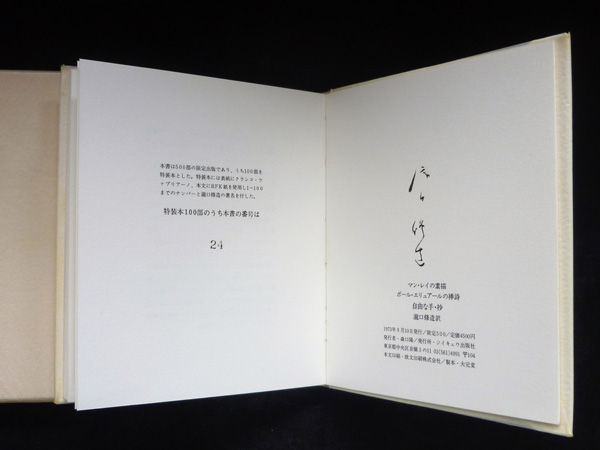 本書は500部の限定出版であり、うち100部を
特装本とした。特装本には表紙にクランゴ・ヴ
ァブリアーノ、本文にBFK紙を使用し1〜100
までのナンバーと瀧口修造の署名を付した。
特装本100部のうち本書の番号は
24
瀧口修造
マン・レイの素描
ポール・エリュアールの捧詩
自由な手・抄
瀧口修造訳
1973年6月10日発行/限定500/定価4500円
発行者・森口陽/発行所・ジイキュウ出版社
東京都中央区京橋3の11 03(561)4091 〒104
本文印刷・欧文印刷株式会社/製本・大元堂